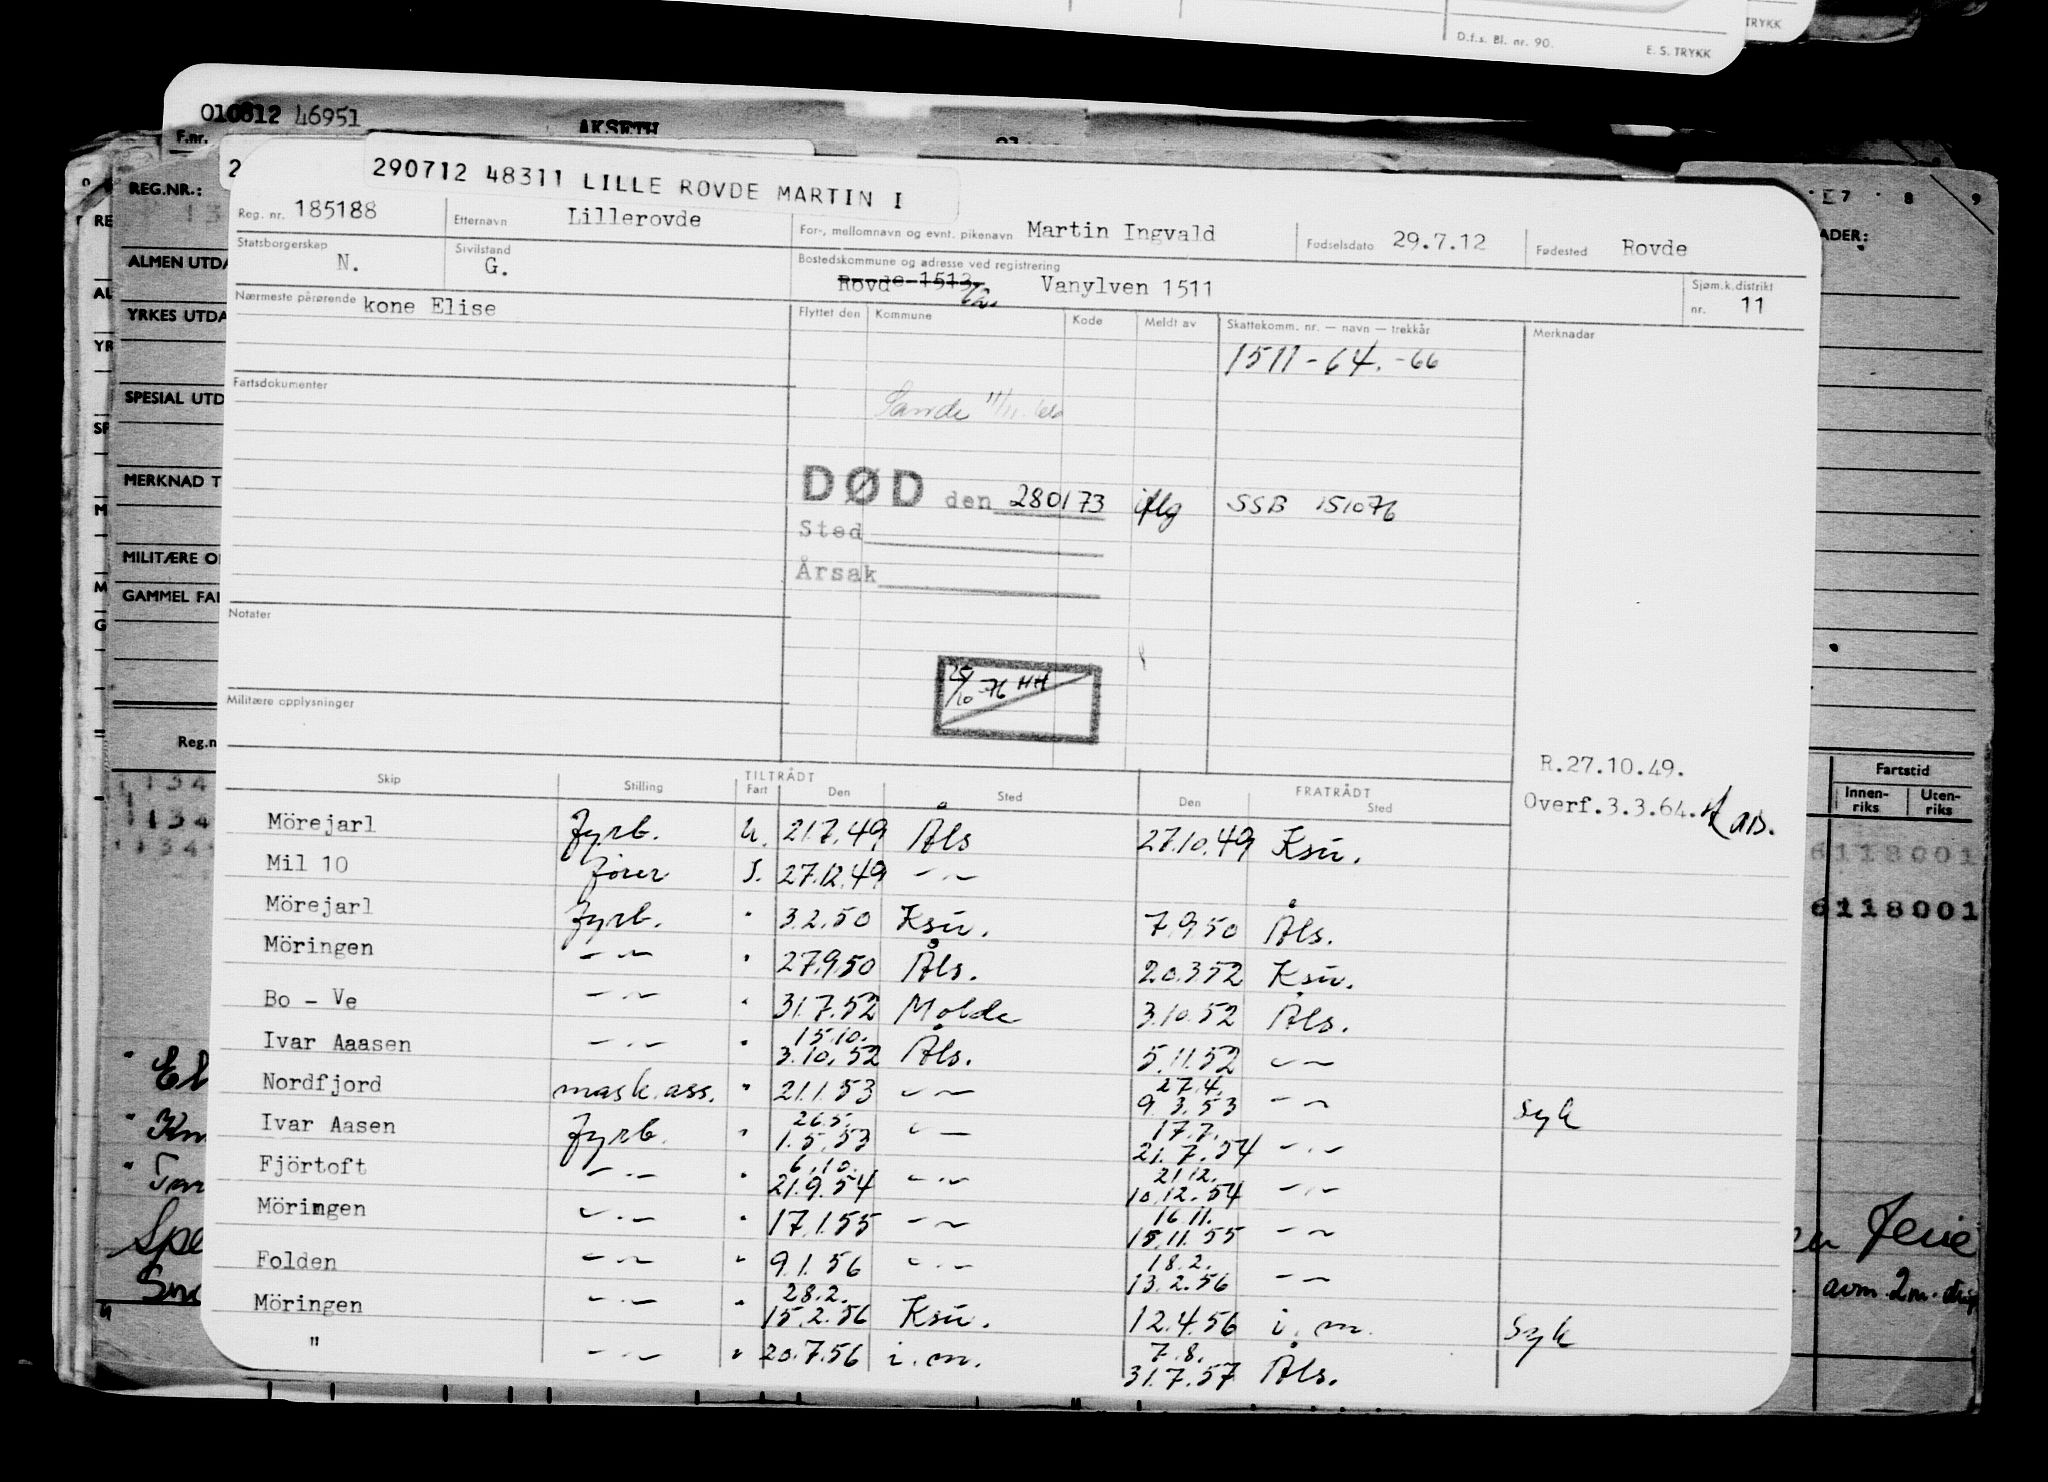 D.f.s. Bl. nr. 90. E. S. TRYKK
TRYKK
010812 46951
F.nr. AKSETH
REG.NR.:
ALMEN UTDA
YRKES UTDA
SPESIAL UTD
MERKNAD T
MILITÆRE O
GAMMEL FA
Reg.n
ADER:
7 8 9
290712 48311 LILLE ROVDE MARTIN I
Reg. nr. 185188 Etternavn Lillerovde For-, mellomnavn og evnt. pikenavn Martin Ingvald Fødselsdato 29.7.12 Fødested Rovde
Statsborgerskap N. Sivilstand G. Bostedskommune og adresse ved registrering Rovde 1513 Vanylven 1511 Sjøm.k.distrikt nr. 11
Nærmeste pårørende kone Elise Flyttet den Kommune Kode Meldt av Skattekomm. nr. — navn — trekkår Merknader
1511-64.-66
Fartsdokumenter
Sande
DØD den 280173 iflg SSB 151076
Sted
Årsak
Notater
25/10-76 HH
Militære opplysninger
R.27.10.49.
Overf.3.3.64.
Skip Stilling TILTRÅDT Fart Den Sted FRATRÅDT Den Sted
Mörejarl Fyrb. U. 21.7.49 Åls 27.10.49 Ksu.
Mil 10 fører I. 27.12.49 — " —
Mörejarl Fyrb. " 3.2.50 Ksu. 7.9.50 Åls.
Möringen — " — " 27.9.50 Åls. 20.3.52 Ksu.
Bo - Ve — " — " 31.7.52 Molde 3.10.52 Åls.
15.10.
Ivar Aaasen — " — " 3.10.52 Åls. 5.11.52 — " —
27.4.
Nordfjord mask.ass. " 21.1.53 — " — 9.3.53 — " — Syk
26.5. 17.7.
Ivar Aasen Fyrb. " 1.5.53 — " — 21.7.54 — " —
6.10. 21.12.
Fjörtoft — " — " 21.9.54 — " — 10.12.54 — " —
16.11.
Möringen — " — " 17.1.55 — " — 15.11.55 — " —
18.2.
Folden — " — " 9.1.56 — " — 13.2.56 — " —
28.2.
Möringen — " — " 15.2.56 Ksu. 12.4.56 i.m. Syk
7.8.
" — " — " 20.7.56 i.m. 31.7.57 Åls.
Fartstid
Innen-riks Uten-riks
6118001
6118001
avm. 2m.